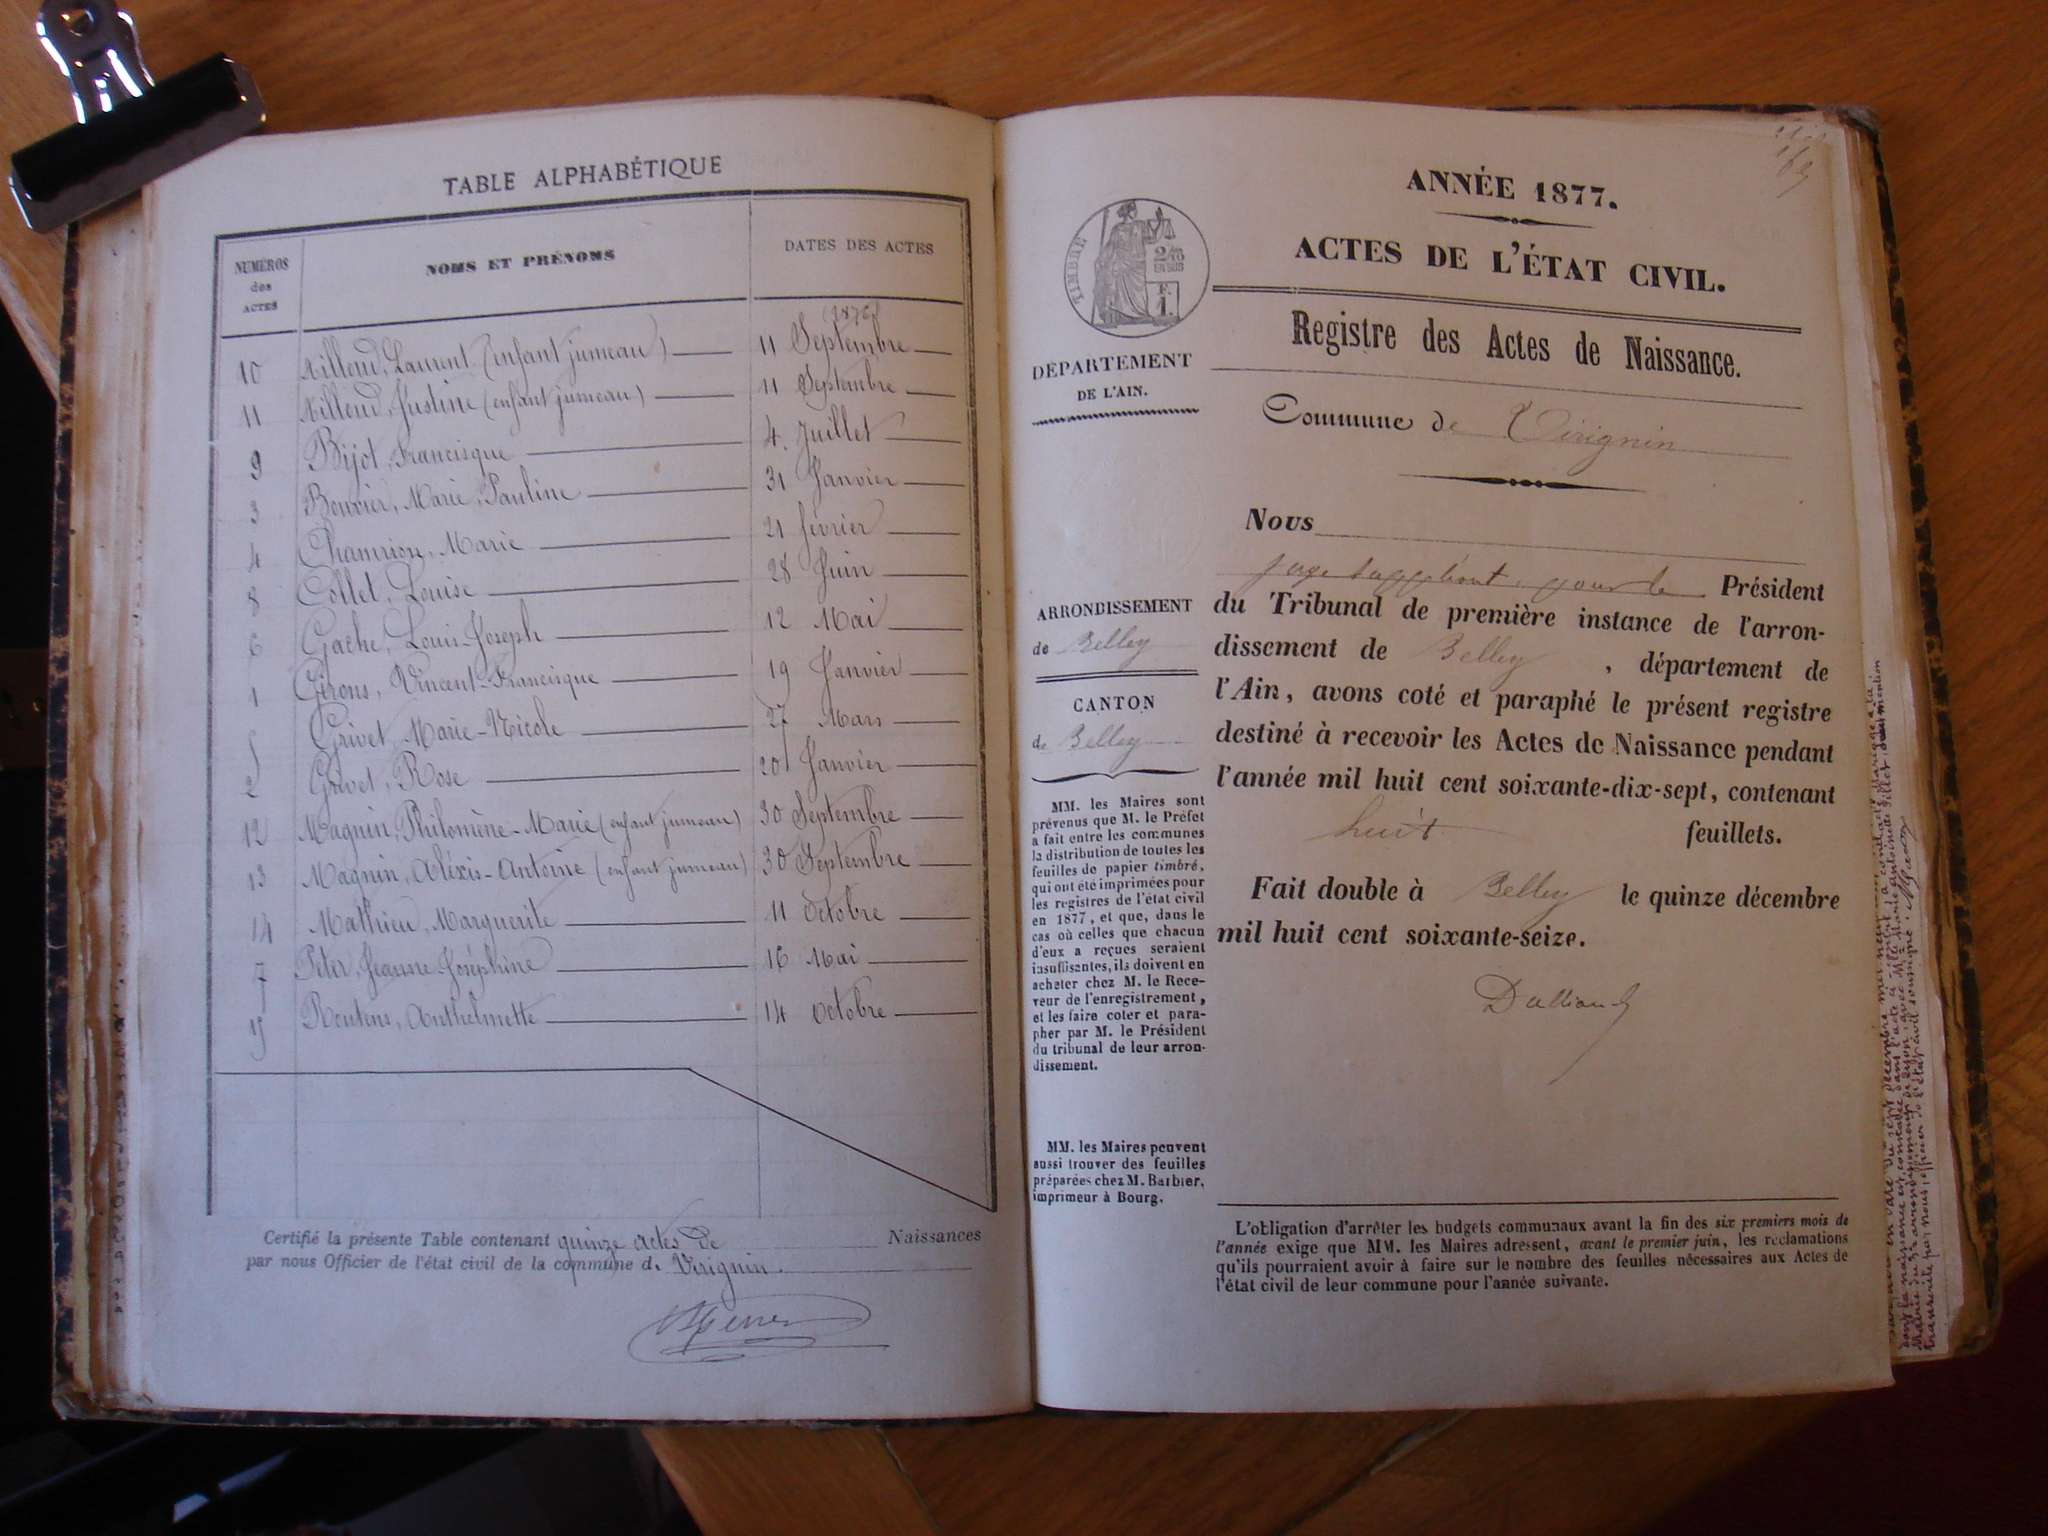 TABLE ALPHABÉTIQUE
NUMÉROS des ACTES
NOMS ET PRÉNOMS
DATES DES ACTES
(1876)
10 Laurent (enfant jumeau) 11 Septembre
11 Justine (enfant jumeau) 11 Septembre
9 Bijot, Francisque 4 Juillet
3 Bouvier, Marie, Pauline 31 Janvier
4 Chamrion, Marie 21 février
8 Collet, Louise 28 Juin
6 Gache, Louis-Joseph 12 Mai
1 Girons, Vincent-Francisque 19 Janvier
5 Grivet, Marie-Nicole 27 Mars
2 Grivet, Rose 20 Janvier
12 Magnin, Philomène-Marie (enfant jumeau) 30 Septembre
13 Magnin, Aléxis-Antoine (enfant jumeau) 30 Septembre
14 Mathieu, Marguerite 11 Octobre
7 Péter, Jeanne Joséphine 16 Mai
15 Routens, Anthelmette 14 Octobre
Certifié la présente Table contenant quinze actes de Naissances
par nous Officier de l'état civil de la commune de Virignin.
ANNÉE 1877.
ACTES DE L'ÉTAT CIVIL.
TIMBRE
Registre des Actes de Naissance.
DÉPARTEMENT
DE L'AIN.
Commune de Virignin
Nous
juge suppléant pour le Président
du Tribunal de première instance de l'arron-
dissement de Belley, département de
l'Ain, avons coté et paraphé le présent registre
destiné à recevoir les Actes de Naissance pendant
l'année mil huit cent soixante-dix-sept, contenant
huit feuillets.
Fait double à Belley le quinze décembre
mil huit cent soixante-seize.
ARRONDISSEMENT
de Belley
CANTON
de Belley
MM. les Maires sont
prévenus que M. le Préfet
a fait entre les communes
la distribution de toutes les
feuilles de papier timbré,
qui ont été imprimées pour
les registres de l'état civil
en 1877, et que, dans le
cas où celles que chacun
d'eux a reçues seraient
insuffisantes, ils doivent en
acheter chez M. le Rece-
veur de l'enregistrement,
et les faire coter et para-
pher par M. le Président
du tribunal de leur arron-
dissement.
MM. les Maires peuvent
aussi trouver des feuilles
préparées chez M. Barbier,
imprimeur à Bourg.
L'obligation d'arrêter les budgets communaux avant la fin des six premiers mois de
l'année exige que MM. les Maires adressent, avant le premier juin, les réclamations
qu'ils pourraient avoir à faire sur le nombre des feuilles nécessaires aux Actes de
l'état civil de leur commune pour l'année suivante.